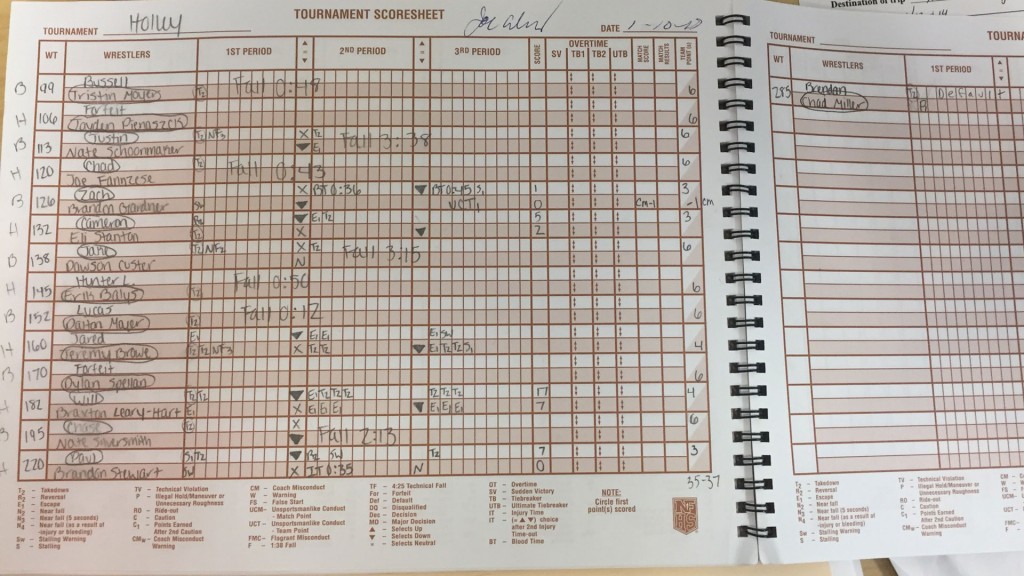 Destination of trip
TOURNAMENT SCORESHEET
TOURNAMENT Holley DATE 1-10-
WT WRESTLERS 1ST PERIOD 2ND PERIOD 3RD PERIOD SCORE OVERTIME SV TB1 TB2 UTB MATCH SCORE MATCH RESULTS TEAM POINT(s)
B 99 Russell Fall 0:48
Tristin Mayers T2 6
H 106 Forfeit
Jayden Pienaszck 6
B 113 Justin T2 NF3 X T2 Fall 3:38 6
Nate Schoonmaker ▼ E1
H 120 Chad T2 Fall 0:43 6
Joe Fannzese
B 126 Zach X BT 0:36 ▼ BT 0:45 S1 1 3
Brandon Gardner Sw ▼ UCT1 0 CM-1 -1 CM
H 132 Cameron R2 ▼ E1 T2 5 3
Eli Stanton T2 X ▼ 2
B 138 Jake T2 NF2 X T2 Fall 3:15 6
Dawson Custer N
H 145 Hunter L. Fall 0:50
Erik Balys T2 6
B 152 Lucas Fall 0:12
Dalton Mayer T2 6
H 160 Jared E1 ▼ E1 E1 E1 SW
Jeremy Browe T2 T2 NF3 X T2 T2 ▼ E1 T2 T2 S1 4
B 170 Forfeit
Dylan Spellan 6
H 182 Will T2 T2 ▼ E1 T2 T2 T2 T2 T2 T2 17 4
Braxton Leary-Hart E1 X E1 E1 E1 ▼ E1 E1 E1 7
B 195 Chase T2 X Fall 2:13 6
Nate Silversmith ▼
H 220 Paul S1 T2 ▼ R2 SW T2 7 3
Brandon Stewart SW X IT 0:35 N 0
35-37
T2 – Takedown
R2 – Reversal
E1 – Escape
N2 – Near fall
N3 – Near fall (5 seconds)
N4 – Near fall (as a result of injury or bleeding)
Sw – Stalling Warning
S – Stalling
TV – Technical Violation
P – Illegal Hold/Maneuver or Unnecessary Roughness
RO – Ride-out
C – Caution
C1 – Points Earned After 2nd Caution
CMw – Coach Misconduct Warning
CM – Coach Misconduct
W – Warning
FS – False Start
UCM – Unsportsmanlike Conduct - Match Point
UCT – Unsportsmanlike Conduct - Team Point
FMC – Flagrant Misconduct
F – 1:38 Fall
TF – 4:25 Technical Fall
For – Forfeit
Def – Default
DQ – Disqualified
Dec – Decision
MD – Major Decision
▲ – Selects Up
▼ – Selects Down
× – Selects Neutral
OT – Overtime
SV – Sudden Victory
TB – Tiebreaker
UTB – Ultimate Tiebreaker
IT – Injury Time
IT – (× ▲ ▼) choice after 2nd Injury Time-out
BT – Blood Time
NOTE:
Circle first
point(s) scored
NFHS
TOURNA
TOURNAMENT
WT WRESTLERS 1ST PERIOD
285 Brendan
Chad Miller Default
T2 – Takedown
R2 – Reversal
E1 – Escape
N2 – Near fall
N3 – Near fall (5 seconds)
N4 – Near fall (as a result of injury or bleeding)
Sw – Stalling Warning
S – Stalling
TV – Technical Violation
P – Illegal Hold/Maneuver or Unnecessary Roughness
RO – Ride-out
C – Caution
C1 – Points Earned After 2nd Caution
CMw – Coach Misconduct Warning